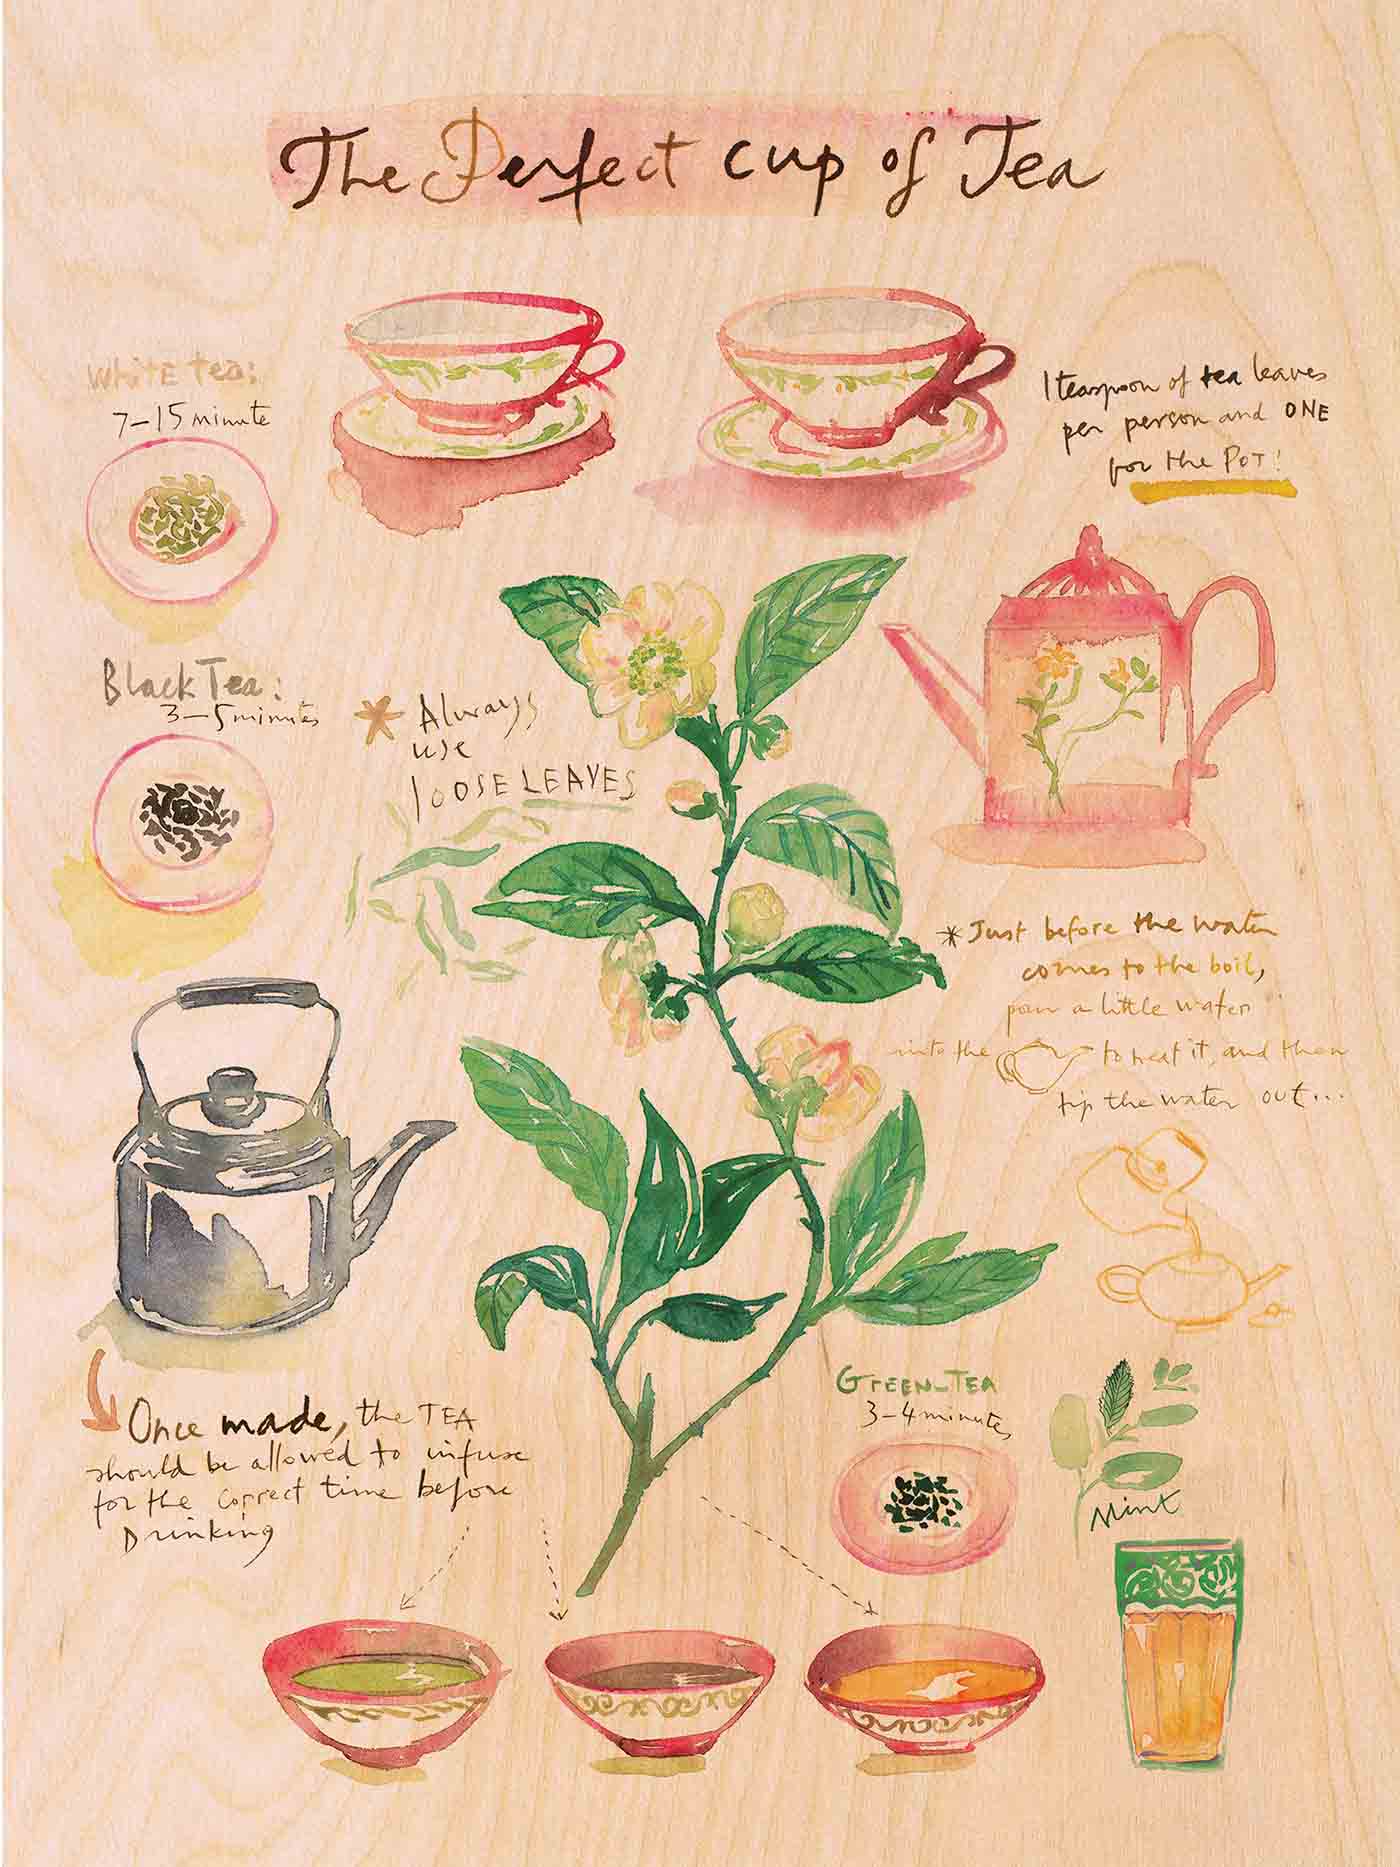 The Perfect cup of Tea
White tea:
7-15 minute
1 teaspoon of tea leaves
per person and ONE
for the POT!
Black Tea:
3-5 minutes
* Always
use
lOOSE LEAVES
* Just before the water
comes to the boil,
pour a little water
into the to heat it, and then
tip the water out...
Once made, the TEA
should be allowed to infuse
for the correct time before
Drinking
GREEN-TEA
3-4 minutes
Mint